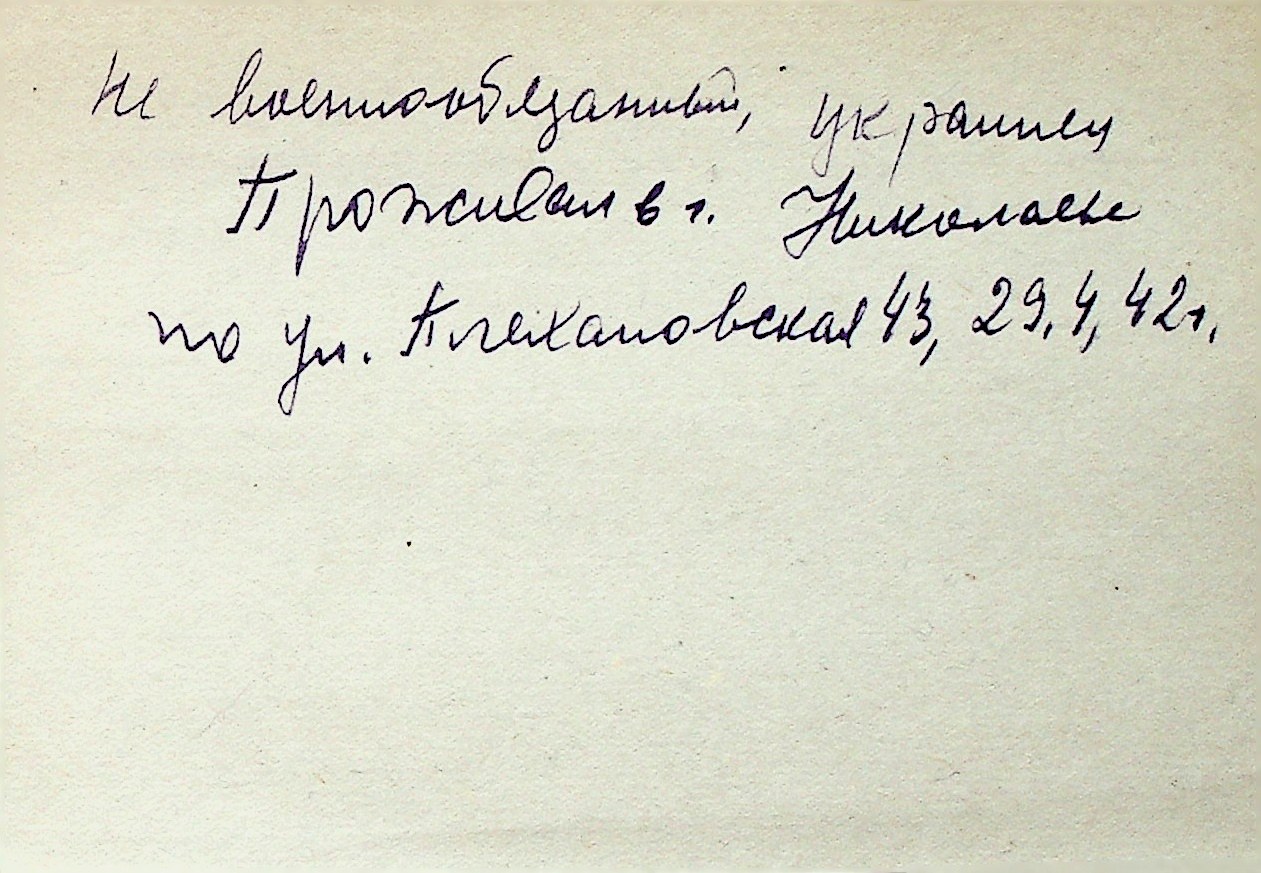 не военнообязанный, украинец
Проживал в г. Николаеве
по ул. Плехановская 43, 29.4, 42г.